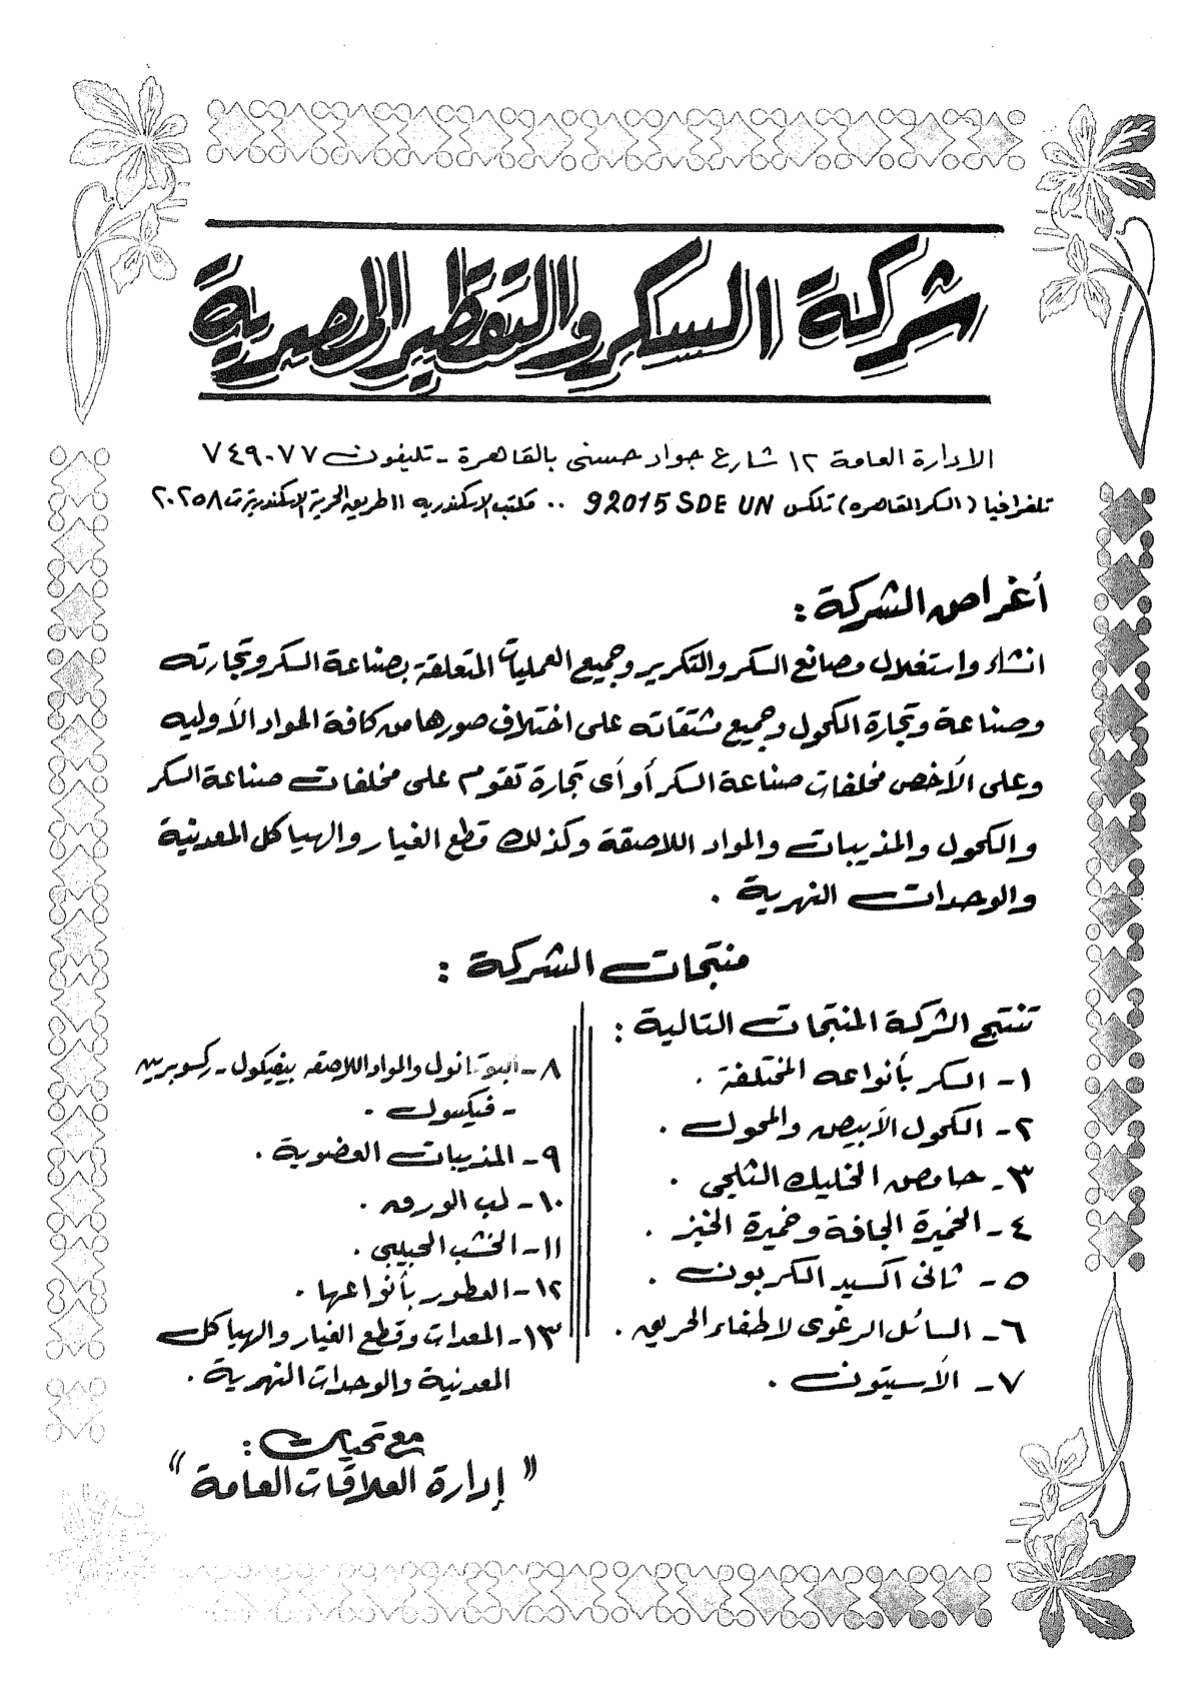 شركة السكر والتقطير المصرية
الادارة العامة ١٢ شارع جواد حسنى بالقاهرة - تليفون ٧٤٩٠٧٧
تلغرافيا (السكر القاهره) تلكس 92015 SDE UN .. مكتب الاسكندريه ١١ طريق الحرية الاسكندرية ت ٢٠٢٥٨
أغراض الشركة :
انشاء واستغلال مصانع السكر والتكرير وجميع العمليات المتعلقة بصناعة السكر وتجارته
وصناعة وتجارة الكحول وجميع مشتقاته على اختلاف صورها من كافة المواد الأوليه
وعلى الأخص مخلفات صناعة السكر أو أى تجارة تقوم على مخلفات صناعة السكر
والكحول والمذيبات والمواد اللاصقة وكذلك قطع الغيار والهياكل المعدنية
والوحدات النهرية .
منتجات الشركة :
تنتج الشركة المنتجات التالية :
١- السكر بأنواعه المختلفة .
٢- الكحول الأبيض والمحول .
٣- حامض الخليك الثلجى .
٤- الخميرة الجافة وخميرة الخبز .
٥- ثانى اكسيد الكربون .
٦- السائل الرغوى لاطفاء الحريق .
٧- الأسيتون .
٨- البوتانول والمواد اللاصقه بيفيكول - ركسوبرين
- فيكسول .
٩- المذيبات العضوية .
١٠- لب الورق .
١١- الخشب الحبيبى .
١٢- العطور بأنواعها .
١٣- المعدات وقطع الغيار والهياكل
المعدنية والوحدات النهرية .
مع تحيات :
" إدارة العلاقات العامة "